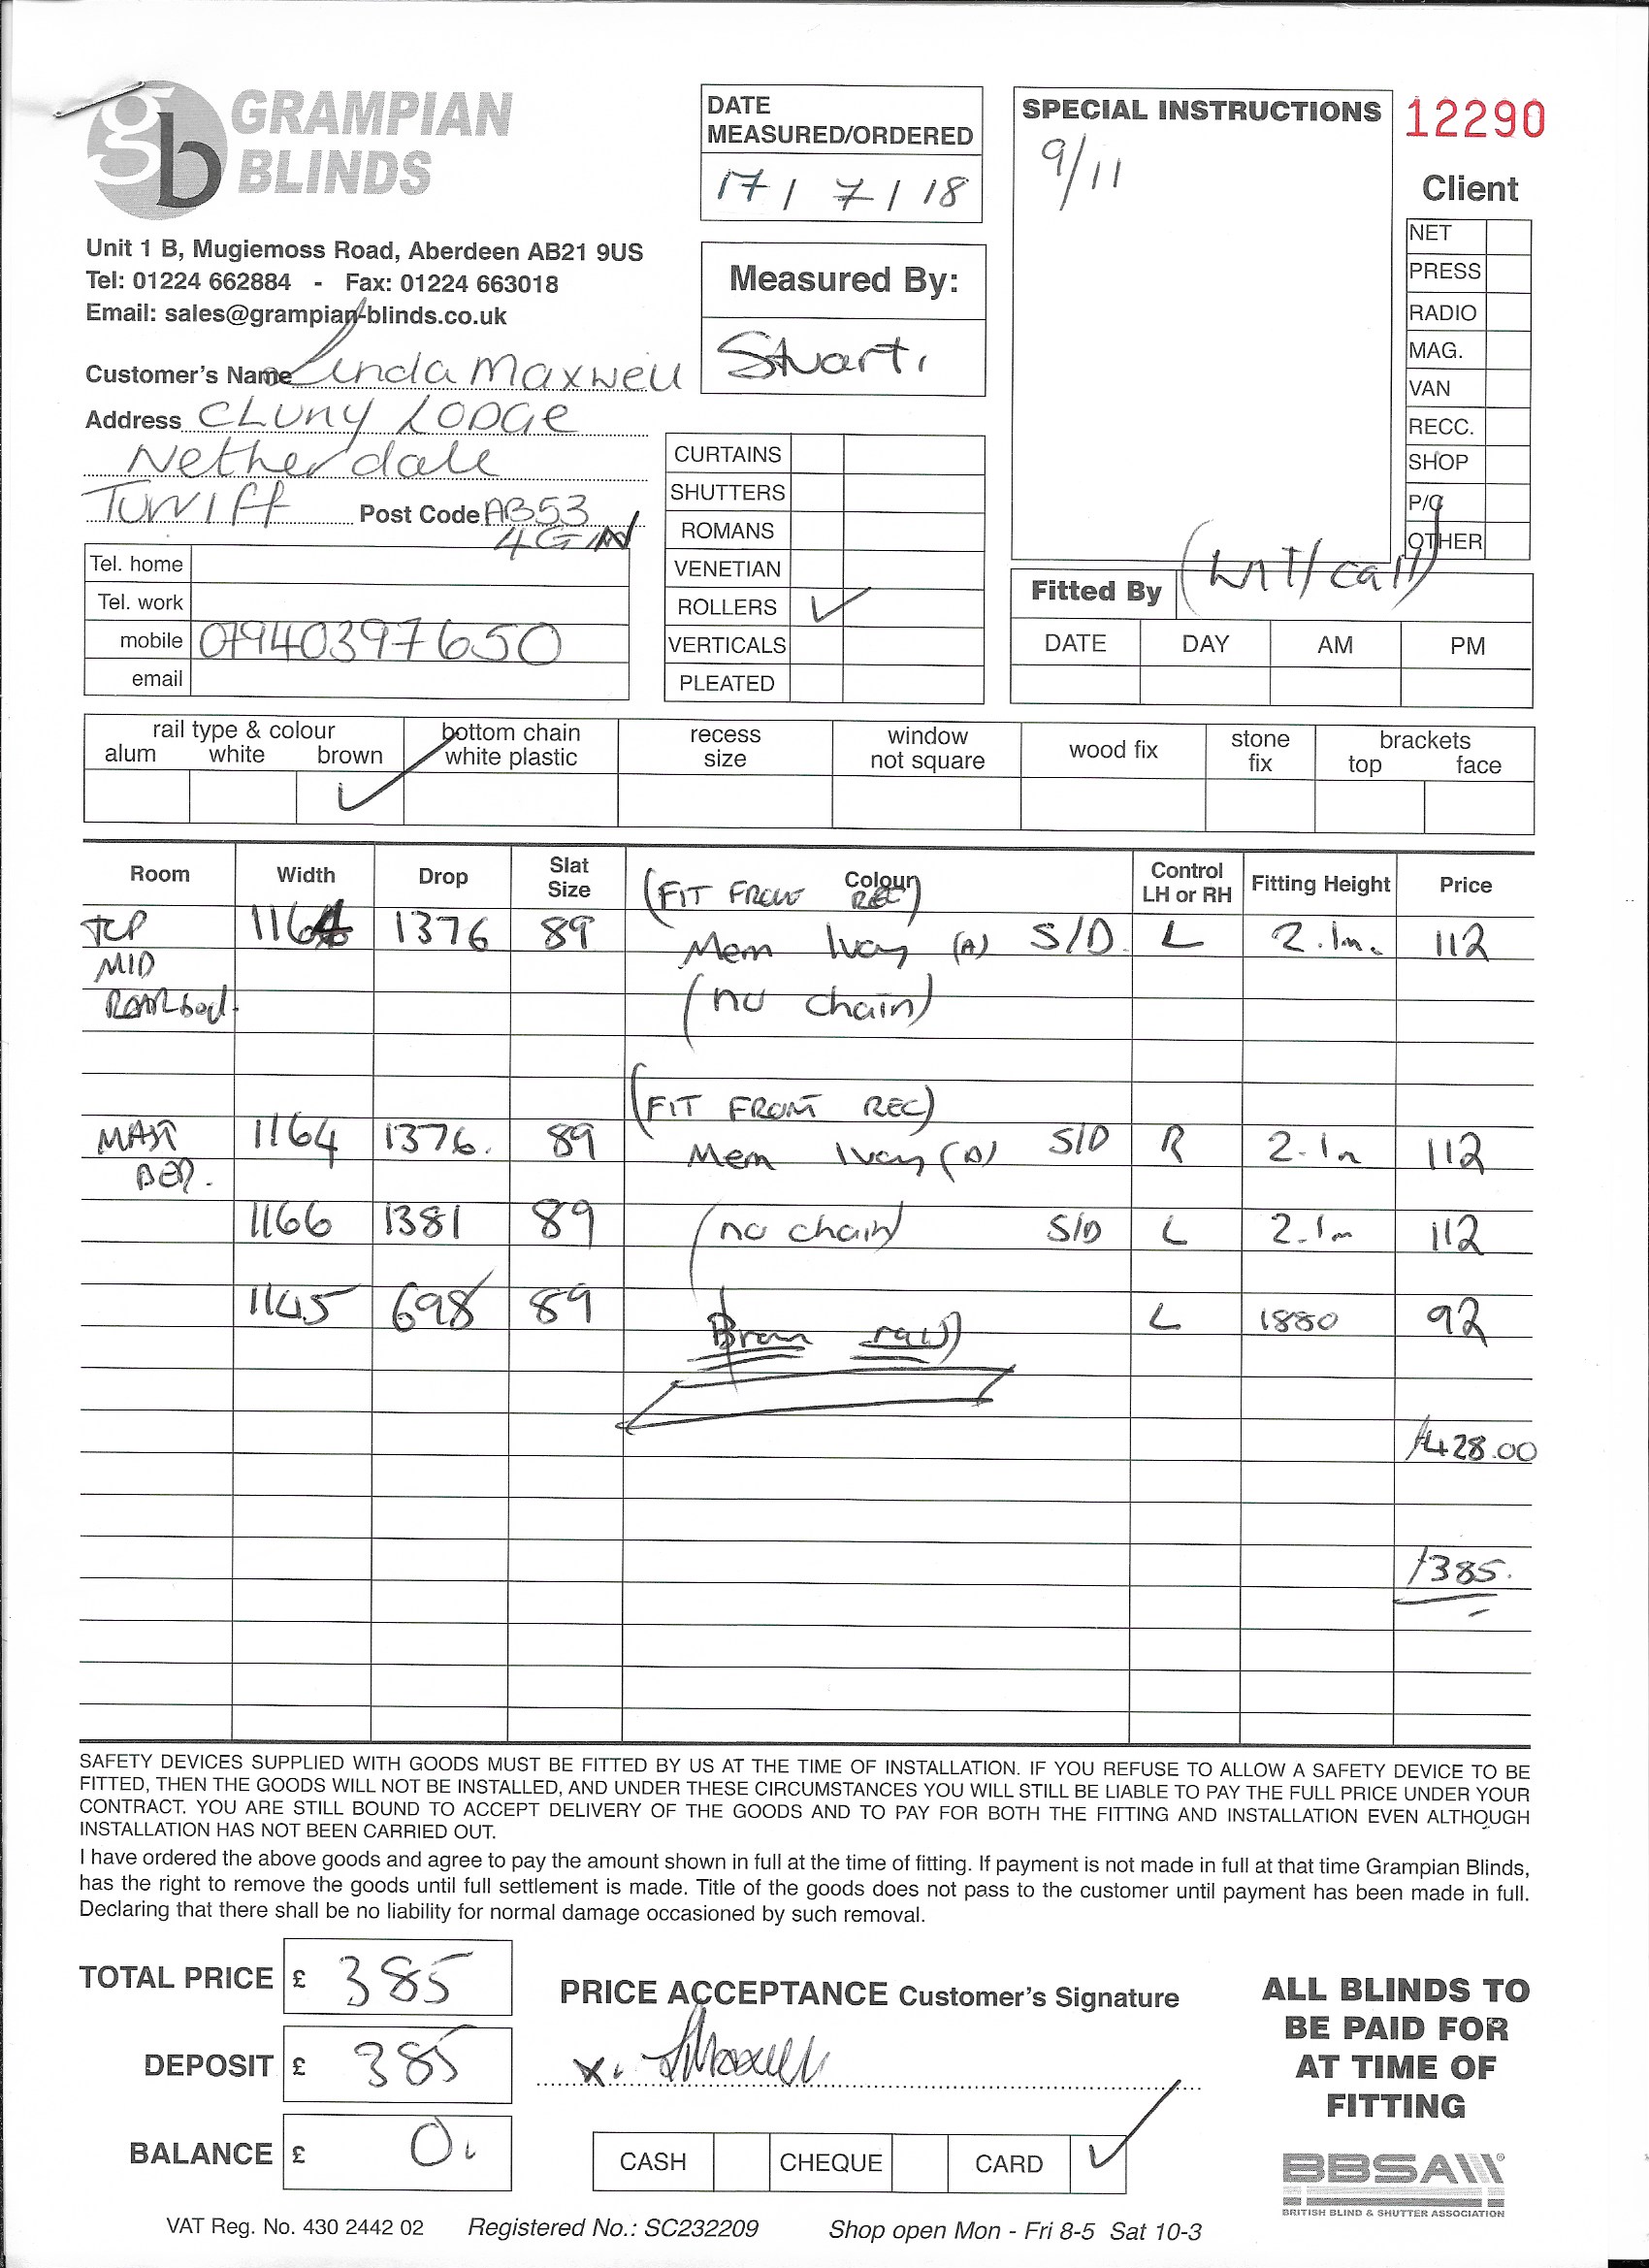 GRAMPIAN
BLINDS
gb
Unit 1 B, Mugiemoss Road, Aberdeen AB21 9US
Tel: 01224 662884 - Fax: 01224 663018
Email: sales@grampian-blinds.co.uk
Customer's Name Linda Maxwell
Address CLUNY LODGE
Netherdale
Turriff Post Code AB53
4GN
Tel. home
Tel. work
mobile 07940397650
email
DATE
MEASURED/ORDERED
17 / 7 / 18
Measured By:
Stuart.
CURTAINS
SHUTTERS
ROMANS
VENETIAN
ROLLERS ✓
VERTICALS
PLEATED
SPECIAL INSTRUCTIONS
9/11
12290
Client
NET
PRESS
RADIO
MAG.
VAN
RECC.
SHOP
P/C
OTHER
Fitted By (WIT/call)
DATE DAY AM PM
rail type & colour bottom chain recess window wood fix stone brackets
alum white brown white plastic size not square fix top face
✓
Room Width Drop Slat Size Colour Control LH or RH Fitting Height Price
(FIT FRONT REC)
TOP 1164 1376 89 Mem Ivory (A) S/D L 2.1m. 112
MID (no chain)
REAR bed.
(FIT FRONT REC)
MAST 1164 1376. 89 Mem Ivory (A) S/D R 2.1m 112
BED.
1166 1381 89 (no chain) S/D L 2.1m 112
1145 698 89 Brown rail) L 1880 92
428.00
385.
SAFETY DEVICES SUPPLIED WITH GOODS MUST BE FITTED BY US AT THE TIME OF INSTALLATION. IF YOU REFUSE TO ALLOW A SAFETY DEVICE TO BE
FITTED, THEN THE GOODS WILL NOT BE INSTALLED, AND UNDER THESE CIRCUMSTANCES YOU WILL STILL BE LIABLE TO PAY THE FULL PRICE UNDER YOUR
CONTRACT. YOU ARE STILL BOUND TO ACCEPT DELIVERY OF THE GOODS AND TO PAY FOR BOTH THE FITTING AND INSTALLATION EVEN ALTHOUGH
INSTALLATION HAS NOT BEEN CARRIED OUT.
I have ordered the above goods and agree to pay the amount shown in full at the time of fitting. If payment is not made in full at that time Grampian Blinds,
has the right to remove the goods until full settlement is made. Title of the goods does not pass to the customer until payment has been made in full.
Declaring that there shall be no liability for normal damage occasioned by such removal.
TOTAL PRICE £ 385
DEPOSIT £ 385
BALANCE £ 0.
PRICE ACCEPTANCE Customer's Signature
x. LMaxwell
CASH CHEQUE CARD ✓
ALL BLINDS TO
BE PAID FOR
AT TIME OF
FITTING
BBSA
BRITISH BLIND & SHUTTER ASSOCIATION
VAT Reg. No. 430 2442 02 Registered No.: SC232209 Shop open Mon - Fri 8-5 Sat 10-3